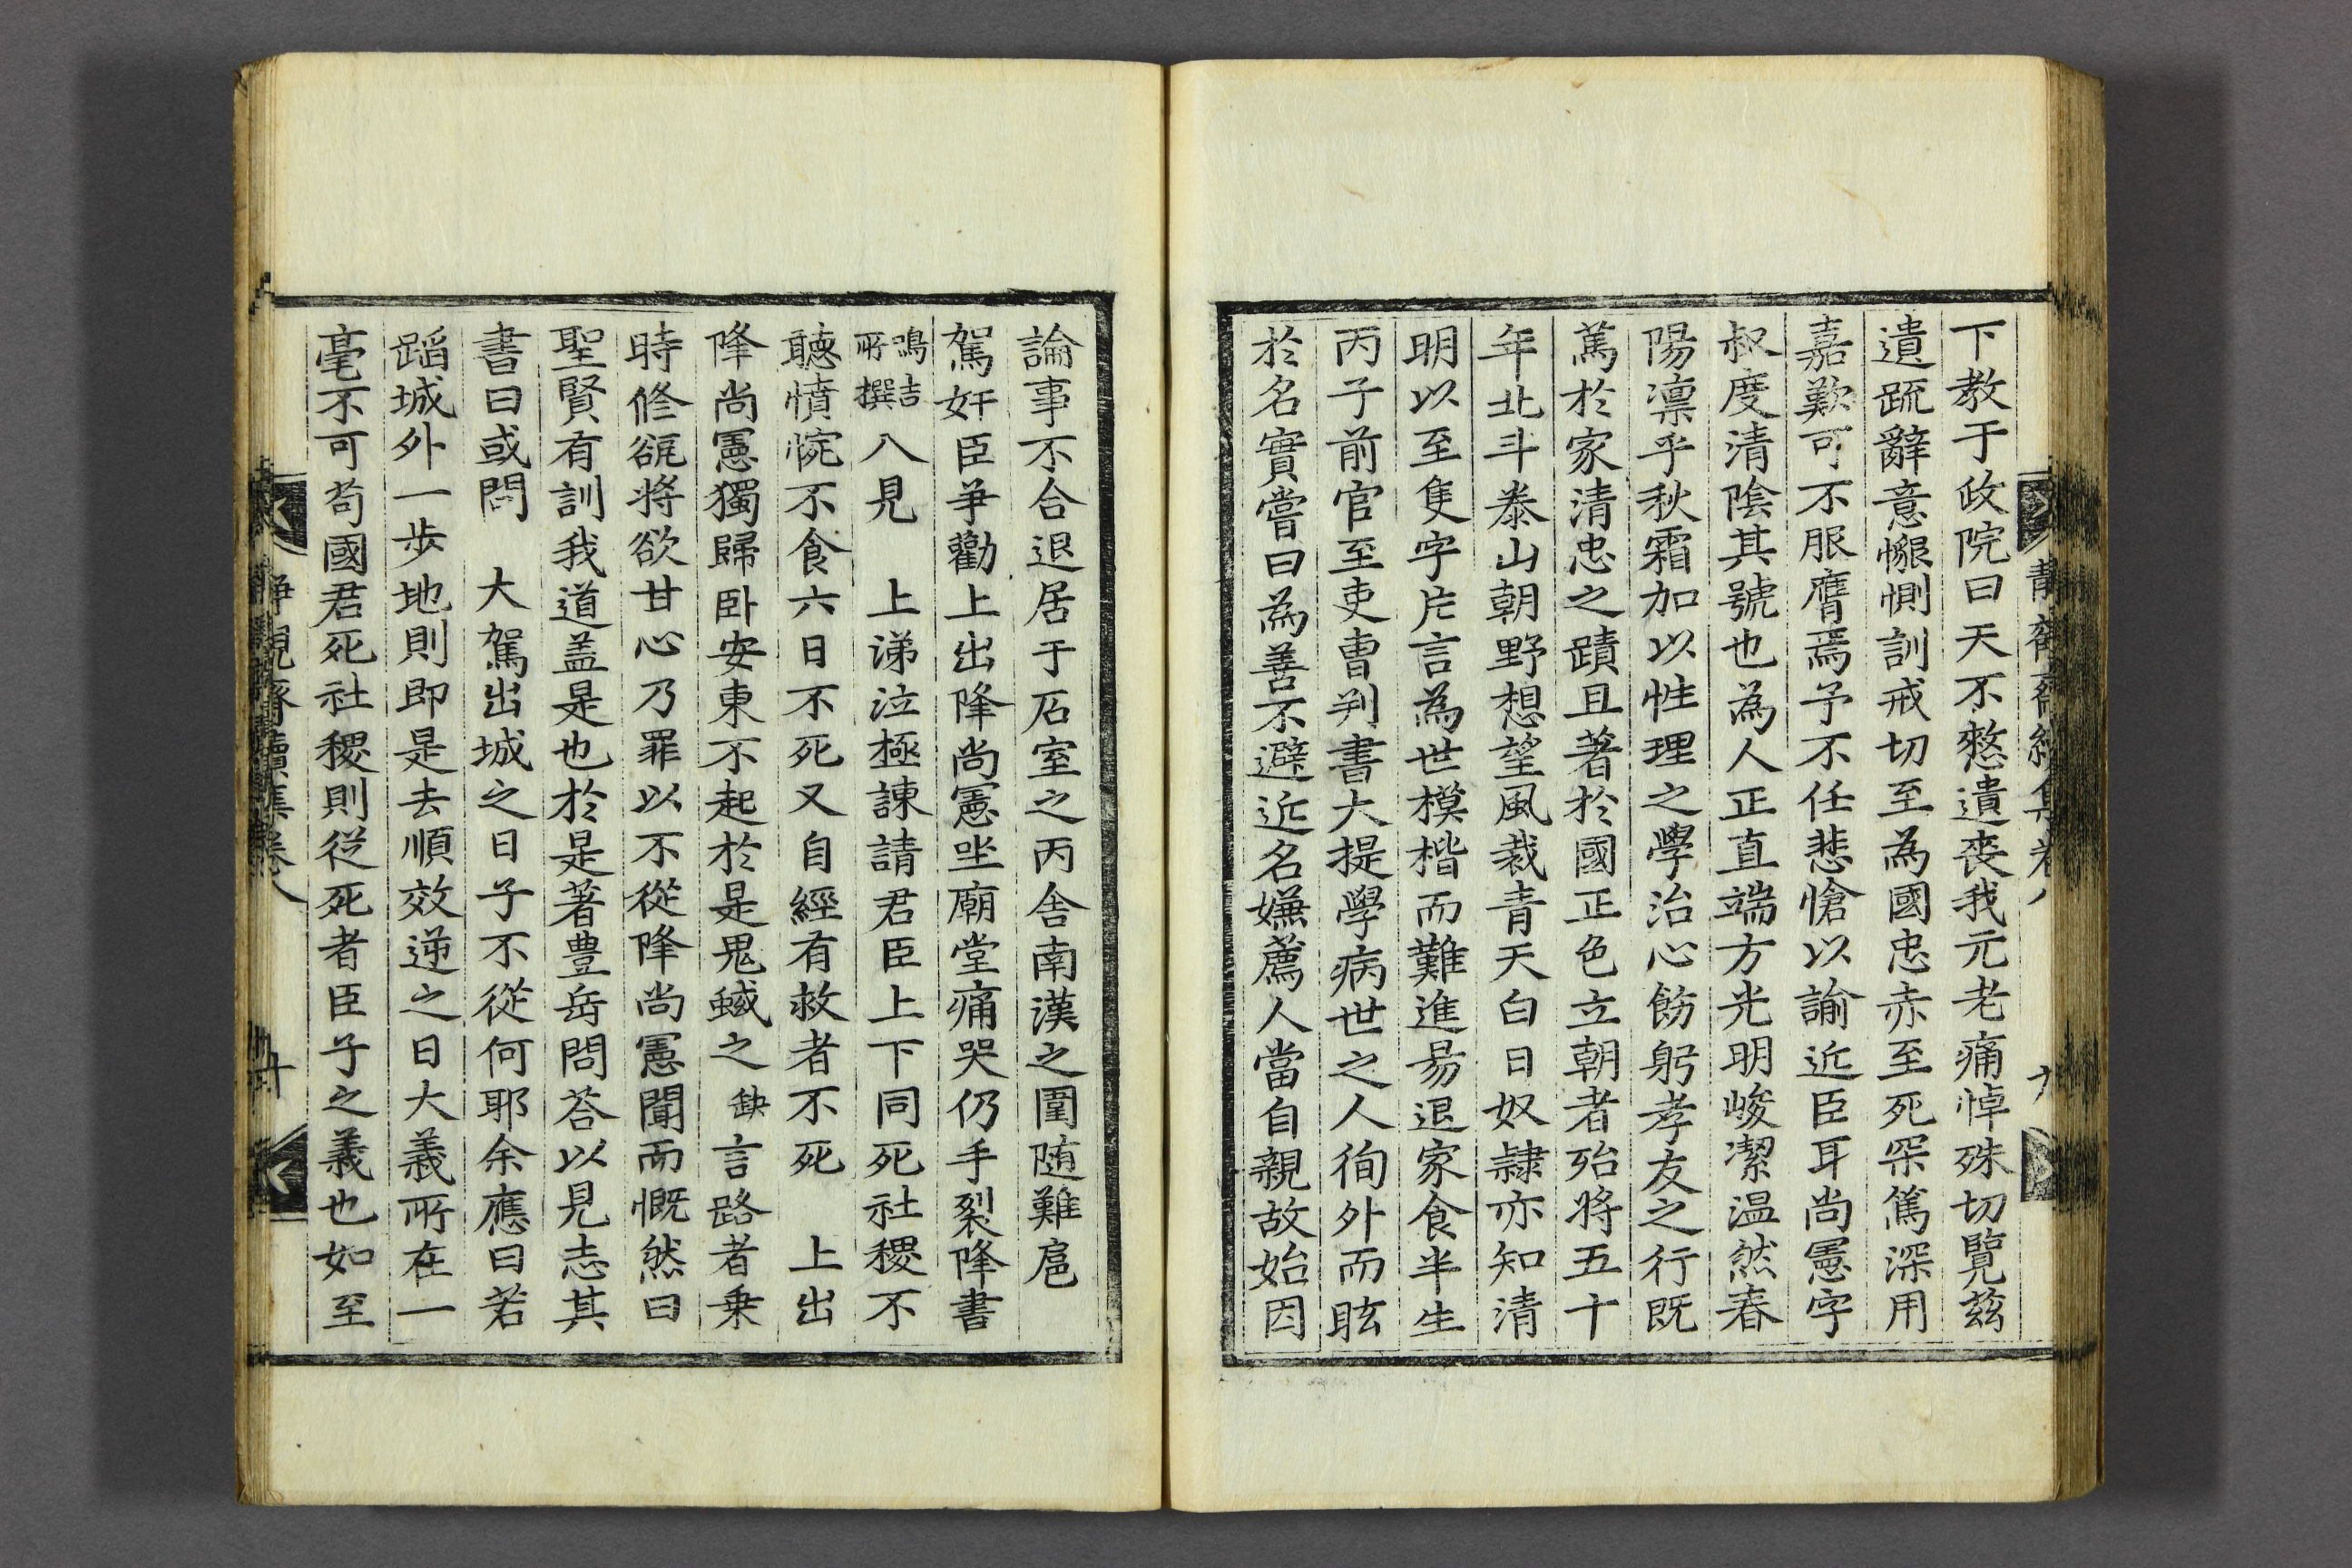 下教于政院曰天不憗遺喪我元老痛悼殊切覽玆
遺疏辭意懇惻訓戒切至為國忠赤至死冞篤深用
嘉歎可不服膺焉予不任悲愴以諭近臣耳尚憲字
叔度清陰其號也為人正直端方光明峻潔温然春
陽凛乎秋霜加以性理之學治心飭躬孝友之行既
篤於家清忠之蹟且著於國正色立朝者殆將五十
年北斗泰山朝野想望風裁青天白日奴隷亦知清
明以至隻字片言為世模楷而難進易退家食半生
丙子前官至吏曹判書大提學病世之人徇外而眩
於名實嘗曰為善不避近名嫌薦人當自親故始因
論事不合退居于石室之丙舍南漢之圍随難扈
駕奸臣爭勸上出降尚憲坐廟堂痛哭仍手裂降書
鳴吉所撰八見　上涕泣極諫請君臣上下同死社稷不
聽憤惋不食六日不死又自經有救者不死　上出
降尚憲獨歸卧安東不起於是鬼蜮之缺言路者乗
時修郤將欲甘心乃罪以不從降尚憲聞而慨然曰
聖賢有訓我道盖是也於是著豊岳問荅以見志其
書曰或問　大駕出城之日子不從何耶余應曰若
蹈城外一步地則即是去順效逆之日大義所在一
毫不可苟國君死社稷則從死者臣子之義也如至
靜觀齋續集卷八
十